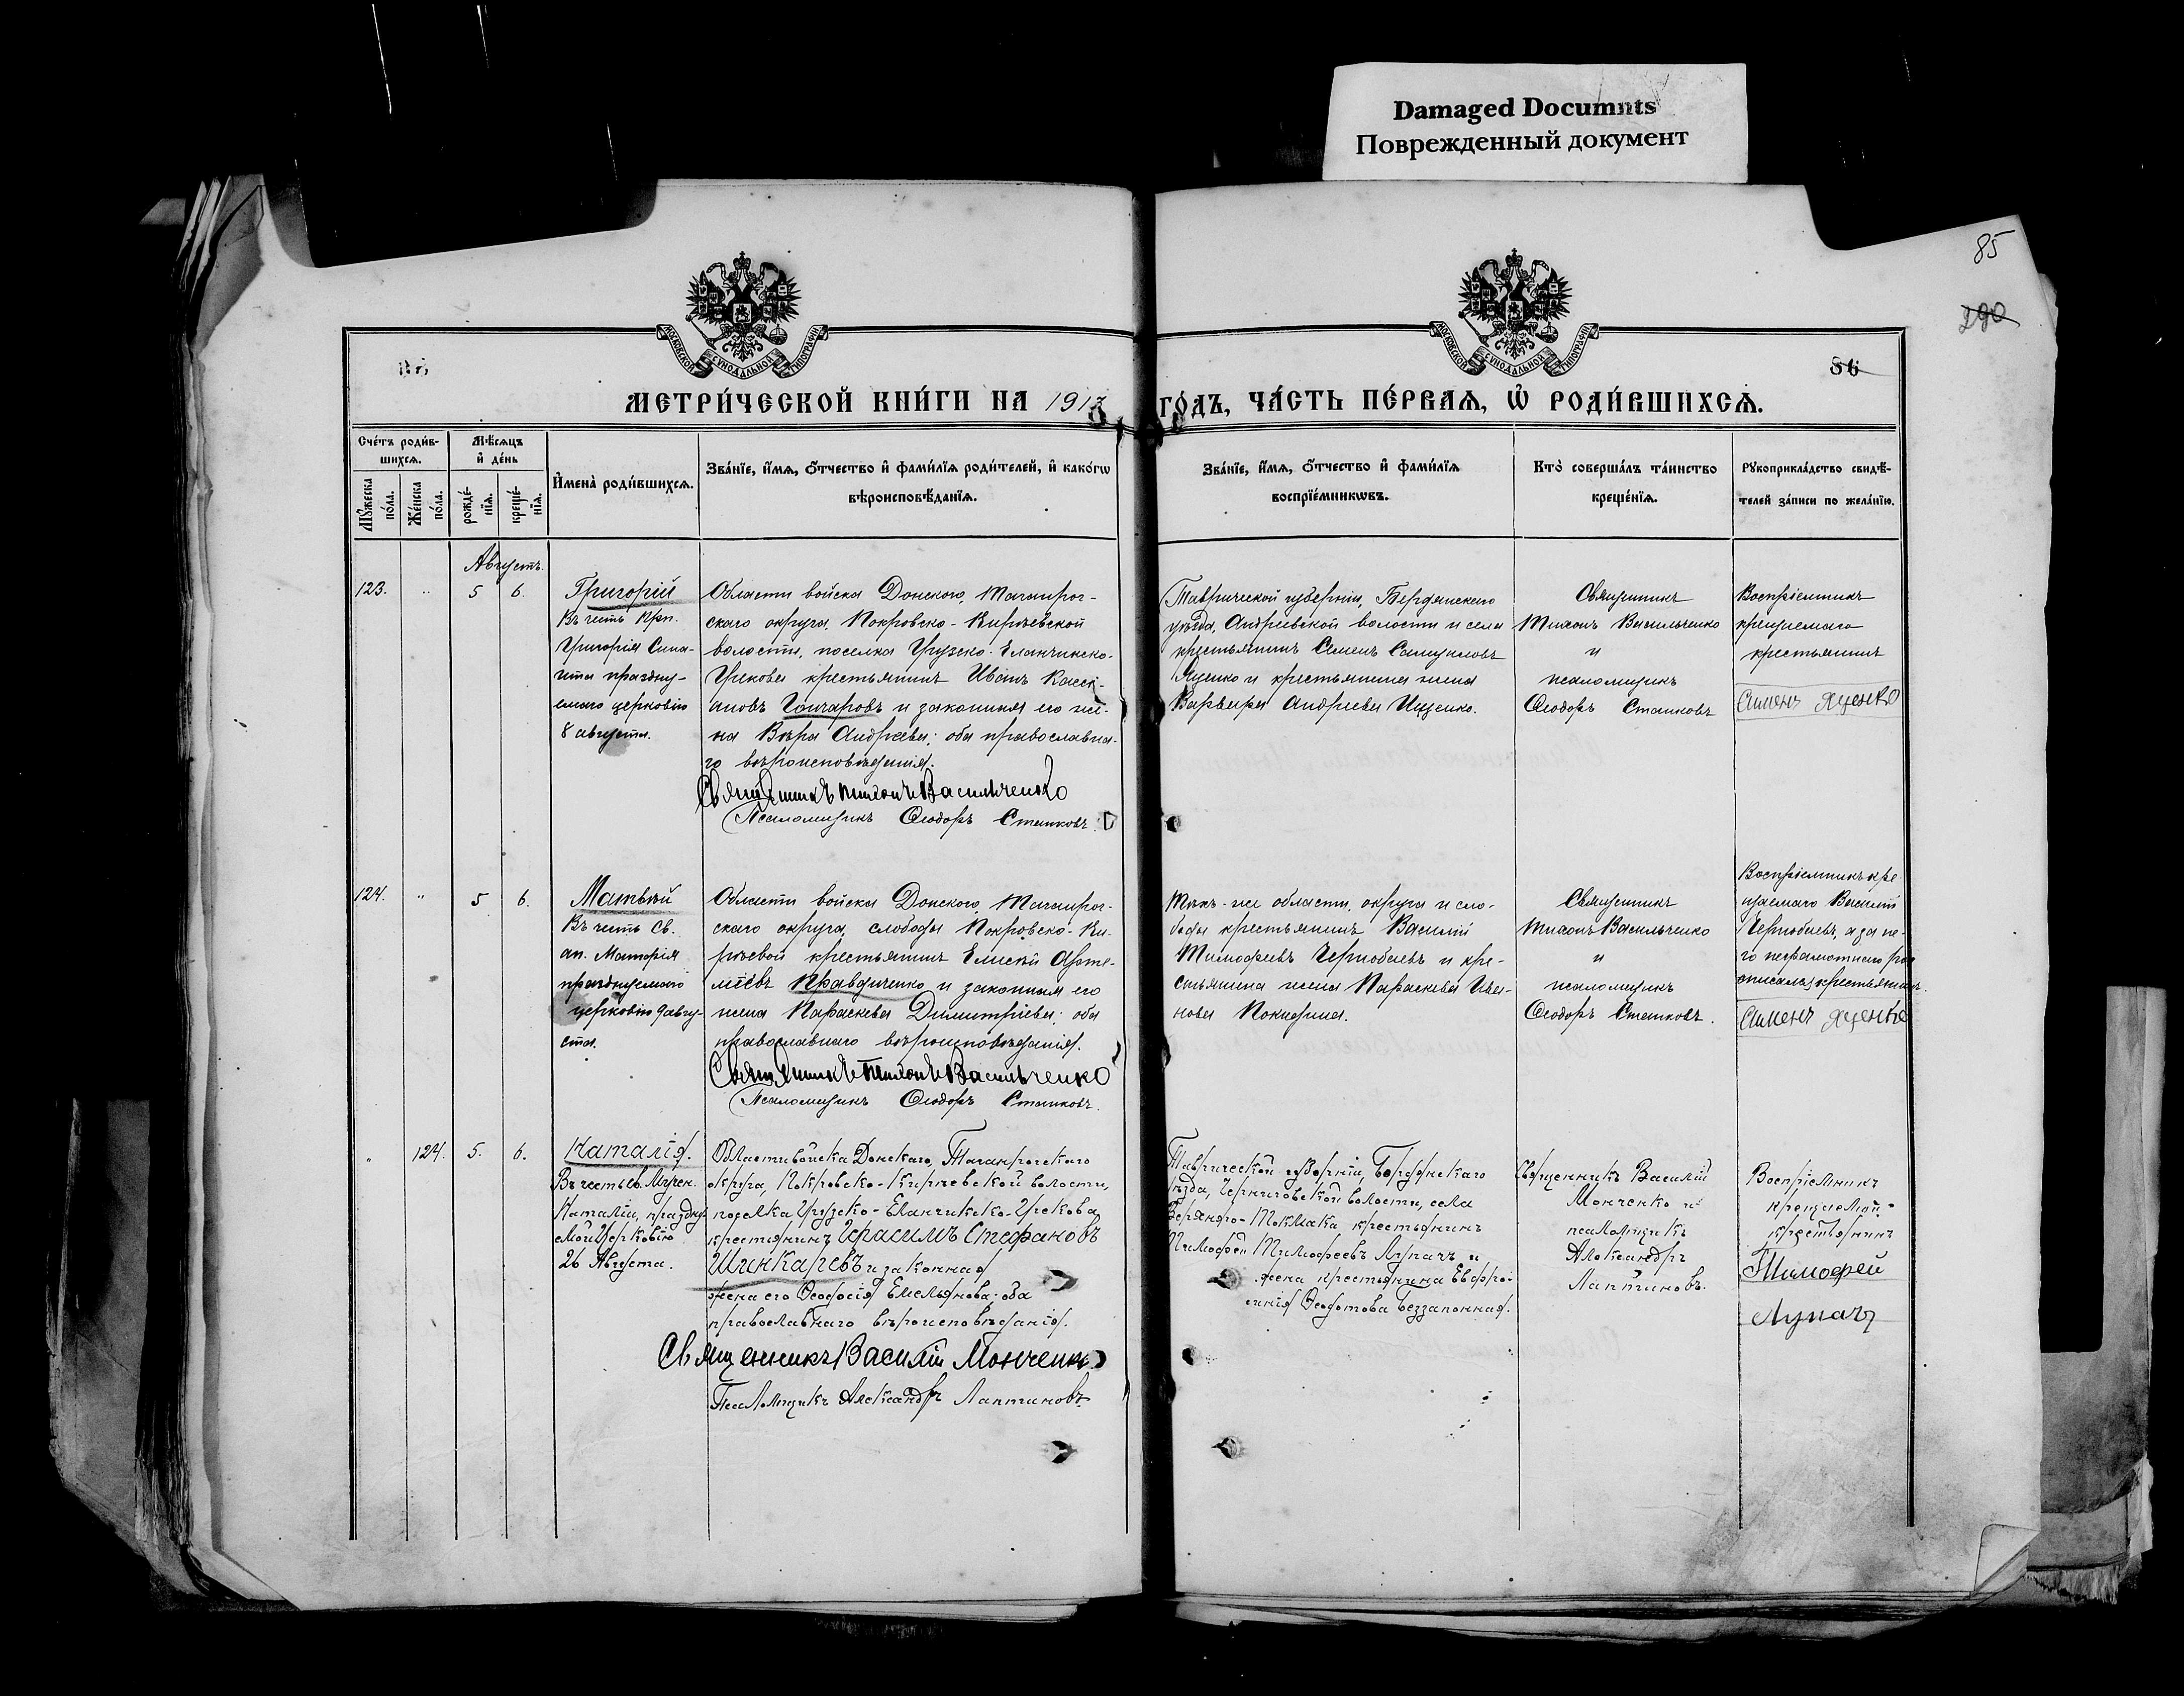 Damaged Documnts
Поврежденный документ
85
290
86
МОСКОВСКОЙ СѴНОДАЛЬНОЙ ТИПОГРАФІИ
МОСКОВСКОЙ СѴНОДАЛЬНОЙ ТИПОГРАФІИ
МЕТРИ́ЧЕСКОЙ КНИ́ГИ НА 1913 ГО́ДЪ, ЧА́СТЬ ПЕ́РВАѦ, Ѡ҆ РОДИ́ВШИХСѦ.
Сче́тъ роди́в-
шихсѧ.
Мѣ́сѧцъ
и҆ де́нь
Мꙋ́жеска по́ла.
Же́нска по́ла.
рожде́-нїѧ.
креще́-нїѧ.
И҆мена̀ роди́вшихсѧ.
Зва́нїе, и҆́мѧ, ѻ҆́тчество и҆ фами́лїѧ роди́телей, и҆ како́гѡ
вѣроисповѣ́данїѧ.
Зва́нїе, и҆́мѧ, ѻ҆́тчество и҆ фами́лїѧ
воспрїе́мникѡвъ.
Кто̀ соверша́лъ та́инство
креще́нїѧ.
Рꙋкоприкла́дство свидѣ́-
телей за́писи по жела́нїю.
Августъ.
123. " 5 6.
Григорій
Въ честь Крп.
Григорія Сина-
ита праздну-
емаго церковію
8 августа.
Области войска Донского, Таганрог-
скаго округа, Покровско-Кирѣевской
волости, поселка Грузско-Еланчикско-
Грекова крестьянинъ Иванъ Касси-
ановъ Гончаровъ и законная его же-
на Вѣра Андреева; оба православна-
го вѣроисповѣданія.
Священникъ Тихонъ Васильченко
Псаломщикъ Ѳеодоръ Сташковъ.
Таврической губерніи, Бердянскаго
уѣзда, Андреевской волости и села
крестьянинъ Семенъ Самуиловъ
Яценко и крестьянина жена
Варвара Андреева Ищенко.
Священникъ
Тихонъ Васильченко
и
псаломщикъ
Ѳеодоръ Сташковъ
Воспріемникъ
крещаемаго
крестьянинъ
Сименъ Яценко
124. " 5 6.
Матѳей
Въ честь Св.
ап. Матѳія
празднуемаго
церковію 9 авгу-
ста.
Области войска Донского, Таганрог-
скаго округа, слободы Покровско-Ки-
рѣевой крестьянинъ Елисей Арте-
міевъ Правдиченко и законная его
жена Параскева Димитріева; оба
православнаго вѣроисповѣданія.
Священникъ Тихонъ Васильченко
Псаломщикъ Ѳеодоръ Сташковъ.
Той-же области, округа и сло-
боды крестьянинъ Василій
Тимофеевъ Чернобаевъ и кре-
стьянина жена Параскева Ива-
нова
Священникъ
Тихонъ Васильченко
и
псаломщикъ
Ѳеодоръ Сташковъ.
Воспріемникъ кре-
щаемаго Василій
Чернобаевъ, а за не-
го неграмотнаго рос-
писался крестьянинъ
Сименъ Яценко
" 124. 5. 6.
Наталія.
Въ честь св. Мучен.
Наталіи, праздну-
емой Церковію
26 Августа.
Области войска Донскаго, Таганрогскаго
округа, Покровско-Кирѣевской волости,
поселка Грузско-Еланчикско-Грекова
крестьянинъ Герасимъ Стефановъ
Шинкаревъ и законная
жена его Ѳеодосія Емельянова; оба
православнаго вѣроисповѣданія.
Священникъ Василій Монченко
Псаломщикъ Александръ Лаптиновъ
Таврической губерніи, Бердянскаго
уѣзда, Черниговской волости, села
Верхняго-Токмака крестьянинъ
Тимофей Тимофеевъ Лупачъ и
жена крестьянина Евфро-
синія Ѳедотова Беззапонная.
Священникъ Василій
Монченко и
псаломщикъ
Александръ
Лаптиновъ.
Воспріемникъ
крещаемой
крестьянинъ
Тимофей
Лупачъ